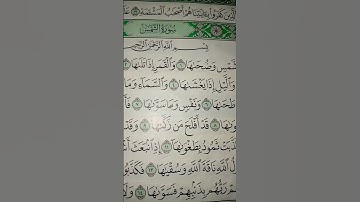 ذين كفروا بآياتنا هم أصحاب المشئمة
سورة الشمس
بسم الله الرحمن الرحيم
شمس وضحىها ١ والقمر إذا تلىها
واليل إذا يغشىها ٤ والسماء وما
طحىها ٦ ونفس وما سوىها ٧ فأ
ونها ٨ قد أفلح من زكىها ٩
بت ثمود بطغوىها ١١ إذ انبعث أ
ل الله ناقة الله وسقيها ١٣ فكذبو
م ربهم بذنبهم فسوىها ١٤ ولا